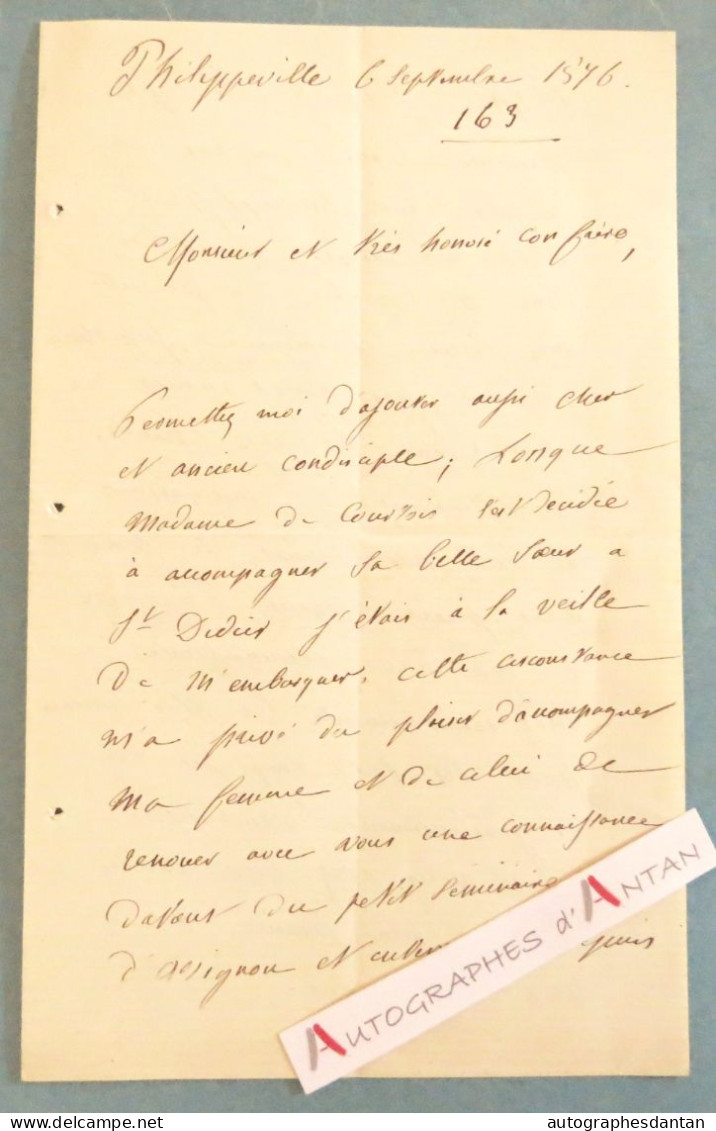 Philippeville 6 Septembre 1876.
163
Monsieur et très honoré confrère,
Permettez moi d'ajouter aussi cher
et ancien condisciple; Lorsque
Madame de Courtois s'est decidée
à accompagner sa belle soeur a
St Didier j'étais à la veille
de m'embarquer. cette circonstance
m'a privé du plaisir d'accompagner
ma femme et de celui de
renouer avec vous une connaissance
datant du petit Seminaire
d'avignon et
AUTOGRAPHES d'ANTAN
delcampe.net
autographesdantan